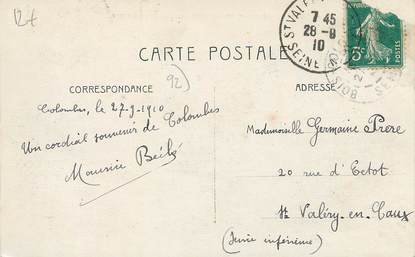 12f
ST VALERY
7 45
28 -9
10
SEINE
5c
CARTE POSTALE
92
CORRESPONDANCE
ADRESSE
Colombes, le 27-9-1910
Un cordial souvenir de Colombes
Maurice
Mademoiselle Germaine Prere
20 rue d'Ectot
St Valéry-en-Caux
(Seine inférieure)